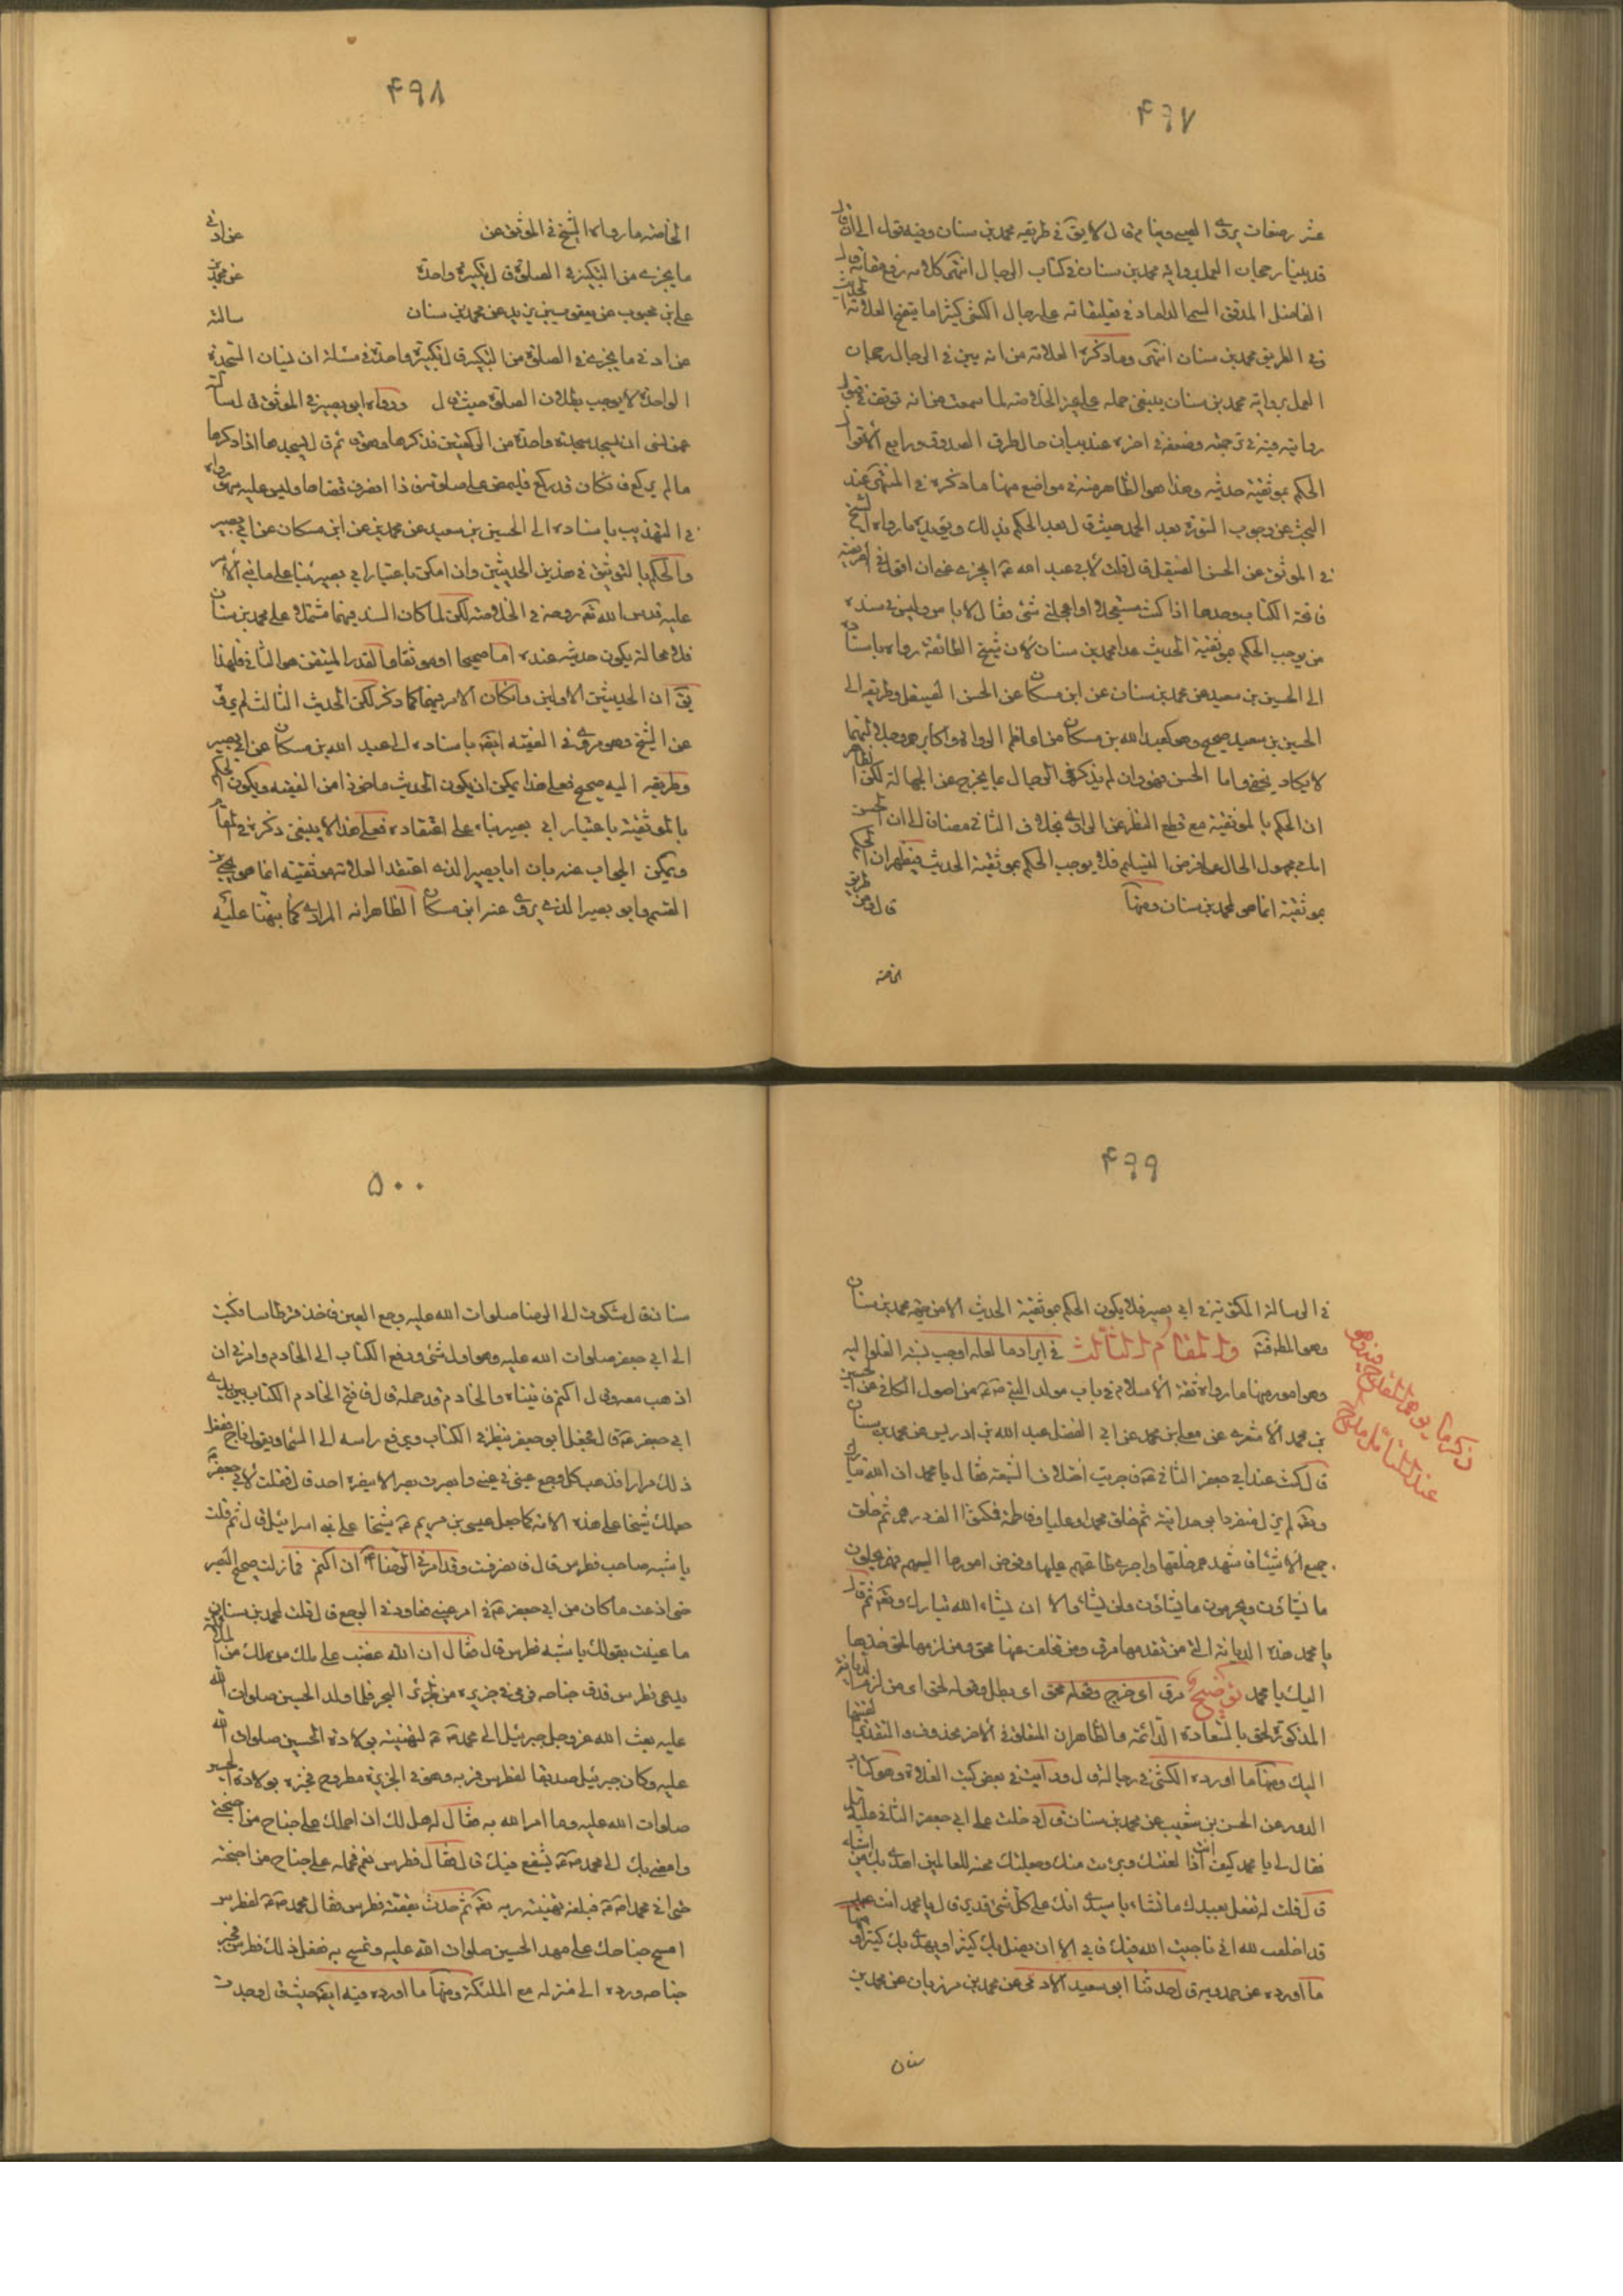 ۴۹۷
قد بينا رجحان العمل برواية محمد بن سنان في كتاب الرجال انتهى كلامه رفع مقامه
في الطريق محمد بن سنان انتهى وما ذكره العلامة من انه بين في الرجال رجحان
العمل برواية محمد بن سنان ينبغي حمله على غير الخلاصة لما سمعت من انه توقف في
الحكم بموثقية حديثه وهذا هو الظاهر منه في مواضع منها ما ذكره في المنتهى عند
البحث عن وجوب السورة بعد الحمد حيث قال بعد الحكم بذلك ويؤيده ما رواه الشيخ
في الموثق عن الحسن الصيقل قال قلت لابي عبد الله ع ايجزى عني ان اقول في الفريضة
فاتحة الكتاب وحدها اذا كنت مستعجلا او اعجلني شئ فقال لا باس وليس في سنده
من يوجب الحكم بموثقية الحديث عدا محمد بن سنان لان شيخ الطائفة رواه باسناده
الى الحسين بن سعيد عن محمد بن سنان عن ابن مسكان عن الحسن الصيقل وطريقه الى
الحسين بن سعيد صحيح وهو كعبد الله بن مسكان من اعاظم الرواة واكابرهم وجلالتهما
لا يكاد يخفى واما الحسن فهو وان لم يذكر في الرجال ما يخرج عن الجهالة لكن الظاهر
ان الحكم بالموثقية مع قطع النظر عن الراوي بخلاف الثاني مضافا الى ان الحسن
بموثقية انما هو لمحمد بن سنان ومنها قال ومن طريق
الخاصة
۴۹۸
الخاصة ما رواه الشيخ في الموثق عن
ما يجزى من التكبير في الصلوة قال تكبيرة واحدة عن محمد بن
علي بن محبوب عن يعقوب بن يزيد عن محمد بن سنان سالته
عن ادنى ما يجزى في الصلوة من التكبير قال تكبيرة واحدة في مسئلة ان نسيان السجدة
الواحدة لا يوجب بطلان الصلوة حيث قال ورواه ابو بصير في الموثق قال سالته
عمن نسى ان يسجد سجدة واحدة من الركعتين فذكرها وهو قائم قال يسجدها اذا ذكرها
ما لم يركع فان كان قد ركع فليمض على صلوته فاذا انصرف قضاها وليس عليه سهو رواه
في التهذيب باسناده الى الحسين بن سعيد عن محمد بن عن ابن مسكان عن ابي بصير
والحكم بالتوثيق في هذين الحديثين وان امكن باعتبار ابي بصير بناء على ما نبه الامر
عليه قدس الله تعه روحه في الخلاصة لكن لما كان السند فيهما مشتملا على محمد بن سنان
فلا محالة يكون حديثه عنده اما صحيحا او موثقا والقدر المتيقن هو الثاني فلهذا
يق ان الحديثين الاولين وان كان الامر فيهما كما ذكر لكن الحديث الثالث لم يرو
عن الشيخ وهو مروي في الفقيه ايضا باسناده الى عبد الله بن مسكان عن ابي بصير
وطريقه اليه صحيح فعلى هذا يمكن ان يكون الحديث ماخوذا من الفقيه ويكون الحكم
بالموثقية باعتبار ابي بصير بناء على اعتقاده فعلى هذا لا ينبغي ذكره في المقام
ويمكن الجواب عنه بان ابا بصير الذي اعتقد العلامة موثقيته انما هو يحيى بن
القسم وابو بصير الذي يروي عنه ابن مسكان الظاهر انه المرادي كما نبهنا عليه
۴۹۹
في الرسالة المكتوبة في ابي بصير فلا يكون الحكم بموثقية الحديث الا من جهة محمد بن سنان
وهو المطلوب والمقام الثالث في ايراد ما لعله اوجب نسبة الغلو اليه
وهو امور منها ما رواه ثقة الاسلام في باب مولد النبي ص من اصول الكافي عن الحسين
بن محمد الاشعري عن معلى بن محمد عن ابي الفضل عبد الله بن ادريس عن محمد بن سنان
قال كنت عند ابي جعفر الثاني ع فاجريت اختلاف الشيعة فقال يا محمد ان الله تبارك
وتعه لم يزل متفردا بوحدانيته ثم خلق محمدا وعليا وفاطمة فمكثوا الف دهر ثم خلق
جميع الاشياء فاشهدهم خلقها واجرى طاعتهم عليها وفوض امورها اليهم فهم يحلون
ما يشاؤن ويحرمون ما يشاؤن ولن يشاؤا الا ان يشاء الله تبارك وتعه ثم قال
يا محمد هذه الديانة التي من تقدمها مرق ومن تخلف عنها محق ومن لزمها لحق خذها
اليك يا محمد توضيح مرق اي خرج وقوله محق اي بطل وقوله لحق اي من لزم الديانة
المذكورة لحق بالسعادة الدائمة والظاهر ان المتعلق في الاخر محذوف والتقدير
اليك ومنها ما اورده الكشي في رجاله قال ورايت في بعض كتب الغلاة وهو كتاب
الدور عن الحسن بن شعيب عن محمد بن سنان قال دخلت على ابي جعفر الثاني عليه
فقال لي يا محمد كيف انت اذا لعنتك وبرئت منك وجعلتك محنة للعالمين اهدي بك من اشاء
قال قلت له تفعل بعبدك ما تشاء يا سيدي انك على كل شئ قدير قال يا محمد انت عبد
قد اخلصت لله اني ناجيت الله فيك فابى الا ان يضل بك كثيرا ويهدي بك كثيرا
ما اورده عن حمدويه قال حدثنا ابو سعيد الادمي عن محمد بن مرزبان عن محمد بن
سنان
۵۰۰
سنان قال شكوت الى الرضا صلوات الله عليه وجع العين فاخذ قرطاسا فكتب
الى ابي جعفر صلوات الله عليه وهو اول شئ ودفع الكتاب الى الخادم وامرني ان
اذهب معه وقال اكتم فاتيناه والخادم قد حمله قال ففتح الخادم الكتاب بين يدي
ابي جعفر ع قال فجعل ابو جعفر ينظر في الكتاب ويرفع راسه الى السماء ويقول ناج ففعل
ذلك مرارا فذهب كل وجع عيني في عيني وابصرت بصرا لا يبصره احد قال فقلت لابي جعفر
جعلك شيخا على هذه الامة كما جعل عيسى بن مريم ع شيخا على بني اسرائيل قال ثم قلت
يا شبيه صاحب فطرس قال فانصرفت وقد امرني الرضا ع ان اكتم فما زلت صحيح البصر
حتى اذعت ما كان من ابي جعفر ع في امر عيني فعاودني الوجع قال قلت لمحمد بن سنان
ما عنيت بقولك يا شبيه فطرس قال فقال ان الله غضب على ملك من ملائكته
يدعى فطرس فدق جناحه فرمى في جزيرة من جزائر البحر فلما ولد الحسين صلوات الله
عليه بعث الله عز وجل جبرئيل الى محمد ص لتهنيته بولادة الحسين صلوات الله
عليه وكان جبرئيل صديقا لفطرس فمر به وهو في الجزيرة مطروح فخبره بولادة الحسين
صلوات الله عليه وما امر الله به فقال له هل لك ان احملك على جناح من اجنحتي
وامضي بك الى محمد ص يشفع فيك قال فقال فطرس نعم فحمله على جناح من اجنحته
حتى اتى محمدا ص فبلغه تهنية ربه تعه ثم حدث بقصة فطرس فقال محمد ص لفطرس
امسح جناحك على مهد الحسين صلوات الله عليه وتمسح به ففعل ذلك فطرس فجبر
جناحه ورده الى منزله مع الملئكة ومنها ما اورده فيه ايضا حيث قال وجدت